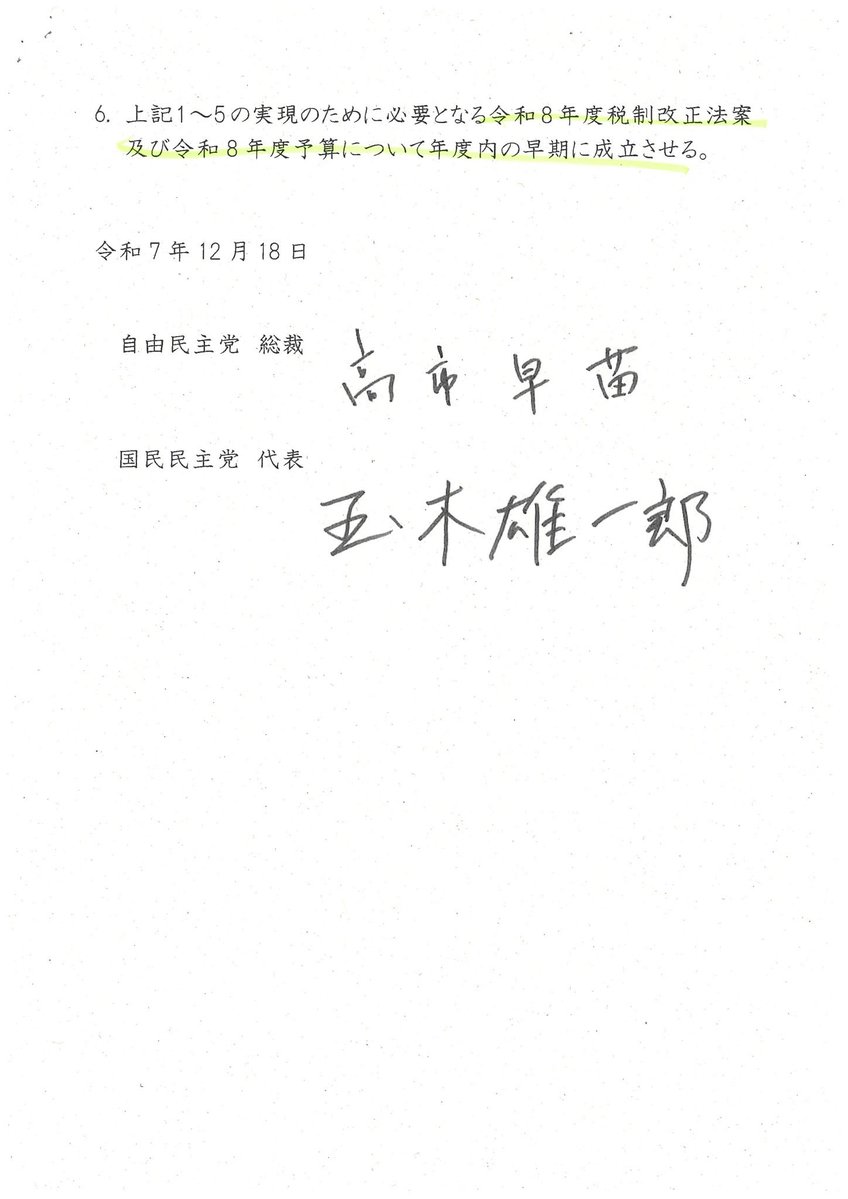 6. 上記1～5の実現のために必要となる令和8年度税制改正法案
及び令和8年度予算について年度内の早期に成立させる。
令和7年12月18日
自由民主党 総裁 高市早苗
国民民主党 代表 玉木雄一郎